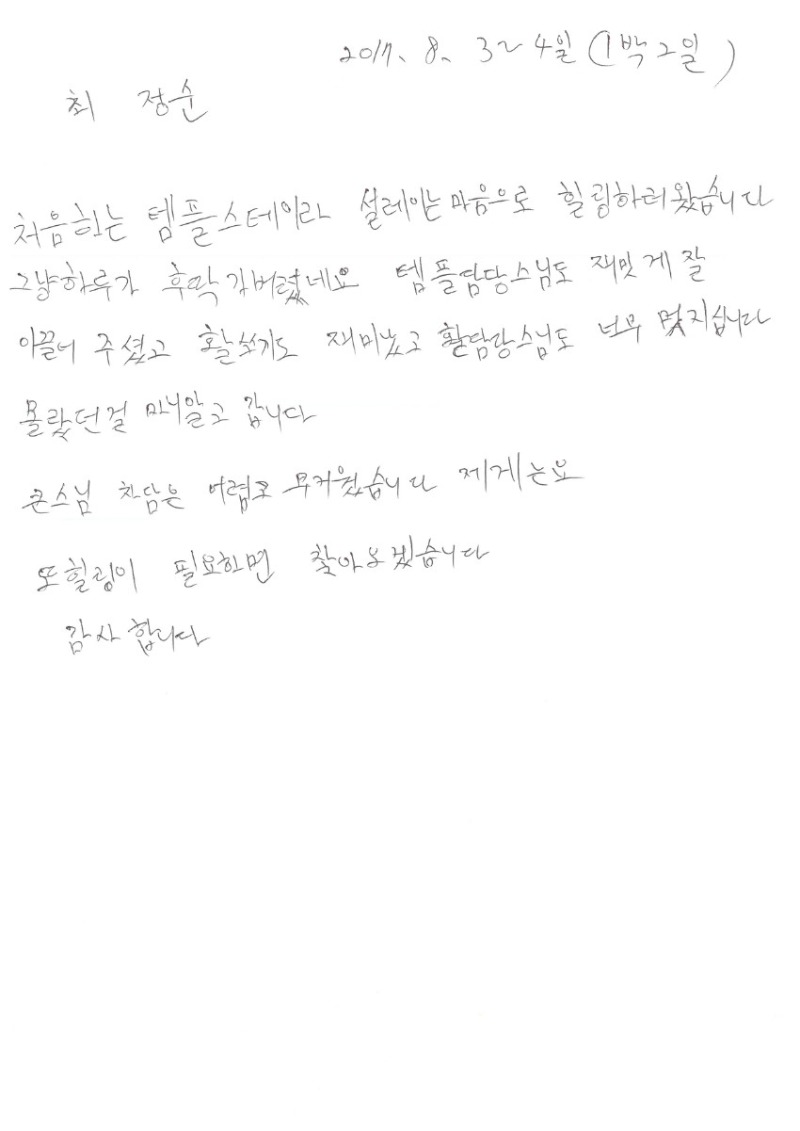 2017. 8. 3~4일 (1박2일)
최 정순
처음하는 템플스테이라 설레이는 마음으로 힐링하러왔습니다
그냥하루가 후딱 가버렸네요 템플담당스님도 재밋게 잘
이끌어 주셨고 활쏘기도 재미났고 활담당스님도 너무 멋지십니다
몰랐던걸 마니알고 갑니다
큰스님 차담은 어렵고 무거웠습니다 제게는요
또힐링이 필요하면 찾아오겠습니다
감사합니다